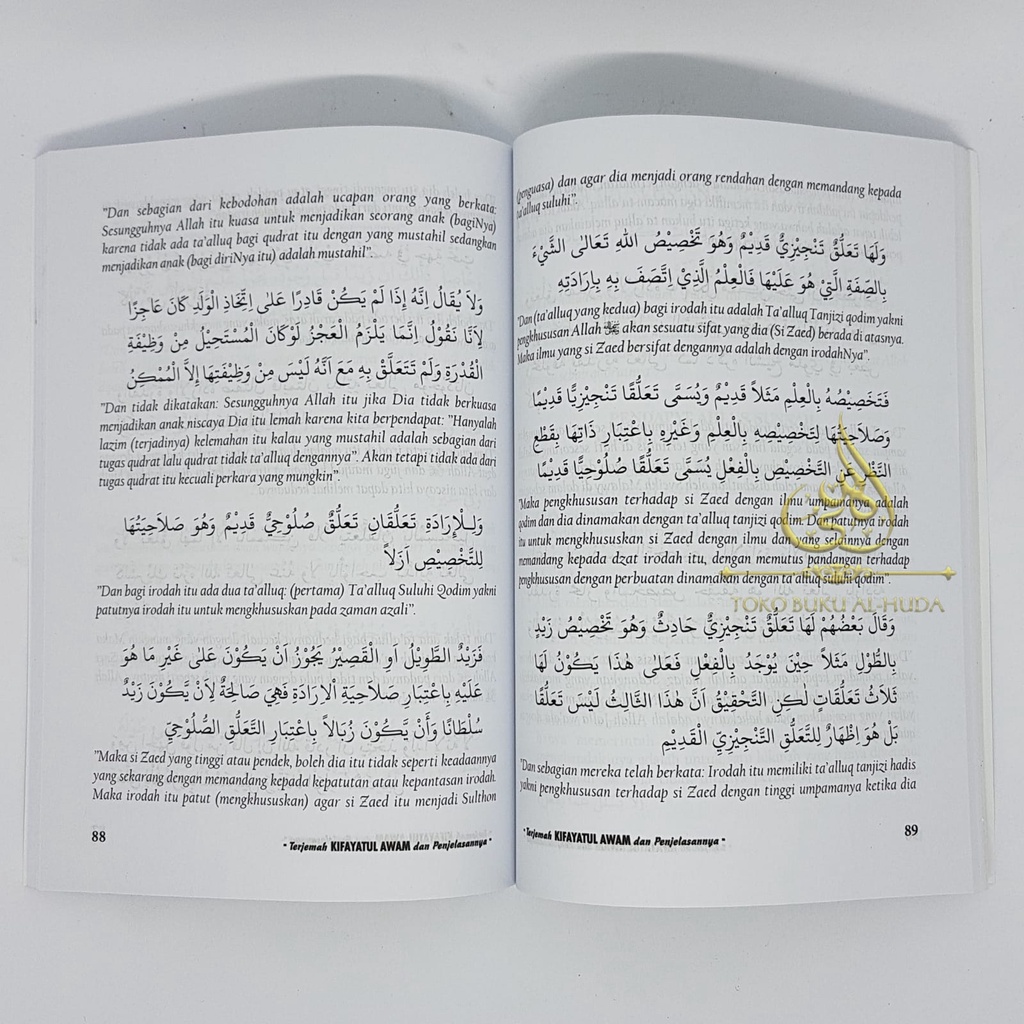 "Dan sebagian dari kebodohan adalah ucapan orang yang berkata:
Sesungguhnya Allah itu kuasa untuk menjadikan seorang anak (bagiNya)
karena tidak ada ta'alluq bagi qudrat itu dengan yang mustahil sedangkan
menjadikan anak (bagi diriNya itu) adalah mustahil".
وَلاَ يُقَالُ اِنَّهُ إِذَا لَمْ يَكُنْ قَادِرًا عَلٰى اِتِّخَاذِ الْوَلَدِ كَانَ عَاجِزًا
لِاَنَّا نَقُوْلُ اِنَّمَا يَلْزَمُ الْعَجْزُ لَوْكَانَ الْمُسْتَحِيْلُ مِنْ وَظِيْفَةِ
الْقُدْرَةِ وَلَمْ تَتَعَلَّقْ بِهِ مَعَ اَنَّهُ لَيْسَ مِنْ وَظِيْفَتِهَا اِلاَّ الْمُمْكِنُ
"Dan tidak dikatakan: Sesungguhnya Allah itu jika Dia tidak berkuasa
menjadikan anak niscaya Dia itu lemah karena kita berpendapat: "Hanyalah
lazim (terjadinya) kelemahan itu kalau yang mustahil adalah sebagian dari
tugas qudrat lalu qudrat tidak ta'alluq dengannya". Akan tetapi tidak ada dari
tugas qudrat itu kecuali perkara yang mungkin".
وَلِلْإِرَادَةِ تَعَلُّقَانِ تَعَلُّقٌ صُلُوْحِيٌّ قَدِيْمٌ وَهُوَ صَلَاحِيَتُهَا
لِلتَّخْصِيْصِ اَزَلاً
"Dan bagi irodah itu ada dua ta'alluq: (pertama) Ta'alluq Suluhi Qodim yakni
patutnya irodah itu untuk mengkhususkan pada zaman azali".
فَزَيْدٌ الطَّوِيْلُ اَوِ الْقَصِيْرُ يَجُوْزُ اَنْ يَكُوْنَ عَلٰى غَيْرِ مَا هُوَ
عَلَيْهِ بِاعْتِبَارِ صَلَاحِيَةِ الْاِرَادَةِ فَهِيَ صَالِحَةٌ لِاَنْ يَّكُوْنَ زَيْدٌ
سُلْطَانًا وَأَنْ يَّكُوْنَ زُبَالاً بِاعْتِبَارِ التَّعَلُّقِ الصُّلُوْحِيِّ
"Maka si Zaed yang tinggi atau pendek, boleh dia itu tidak seperti keadaannya
yang sekarang dengan memandang kepada kepatutan atau kepantasan irodah.
Maka irodah itu patut (mengkhususkan) agar si Zaed itu menjadi Sulthon
88
"Terjemah KIFAYATUL AWAM dan Penjelasannya"
(penguasa) dan agar dia menjadi orang rendahan dengan memandang kepada
ta'alluq suluhi"
وَلَهَا تَعَلُّقٌ تَنْجِيْزِيٌّ قَدِيْمٌ وَهُوَ تَخْصِيْصُ اللهِ تَعَالٰى الشَّيْءَ
بِالصِّفَةِ الَّتِيْ هُوَ عَلَيْهَا فَالْعِلْمُ الَّذِيْ اِتَّصَفَ بِهِ بِاِرَادَتِهِ
"Dan (ta'alluq yang kedua) bagi irodah itu adalah Ta'alluq Tanjizi qodim yakni
pengkhususan Allah ﷻ akan sesuatu sifat yang dia (Si Zaed) berada di atasnya.
Maka ilmu yang si Zaed bersifat dengannya adalah dengan irodahNya".
فَتَخْصِيْصُهُ بِالْعِلْمِ مَثَلاً قَدِيْمٌ وَيُسَمَّى تَعَلُّقًا تَنْجِيْزِيًّا قَدِيْمًا
وَصَلَاحِيَتُهَا لِتَخْصِيْصِهِ بِالْعِلْمِ وَغَيْرِهِ بِاعْتِبَارِ ذَاتِهَا بِقَطْعِ
النَّظْرِ عَنِ التَّخْصِيْصِ بِالْفِعْلِ يُسَمَّى تَعَلُّقًا صُلُوْحِيًّا قَدِيْمًا
"Maka pengkhususan terhadap si Zaed dengan ilmu umpamanya adalah
qodim dan dia dinamakan dengan ta'alluq tanjizi qodim. Dan patutnya irodah
itu untuk mengkhususkan si Zaed dengan ilmu dan yang selainnya dengan
memandang kepada dzat irodah itu, dengan memutus pandangan terhadap
pengkhususan dengan perbuatan dinamakan dengan ta'alluq suluhi qodim".
TOKO BUKU AL-HUDA
وَقَالَ بَعْضُهُمْ لَهَا تَعَلُّقٌ تَنْجِيْزِيٌّ حَادِثٌ وَهُوَ تَخْصِيْصُ زَيْدٍ
بِالطُّوْلِ مَثَلاً حِيْنَ يُوْجَدُ بِالْفِعْلِ فَعَلٰى هٰذَا يَكُوْنُ لَهَا
ثَلَاثُ تَعَلُّقَاتٍ لٰكِنِ التَّحْقِيْقُ اَنَّ هٰذَا الثَّالِثُ لَيْسَ تَعَلُّقًا
بَلْ هُوَ اِظْهَارٌ لِلتَّعَلُّقِ التَّنْجِيْزِيِّ الْقَدِيْمِ
"Dan sebagian mereka telah berkata: Irodah itu memiliki ta'alluq tanjizi hadis
yakni pengkhususan terhadap si Zaed dengan tinggi umpamanya ketika dia
"Terjemah KIFAYATUL AWAM dan Penjelasannya"
89